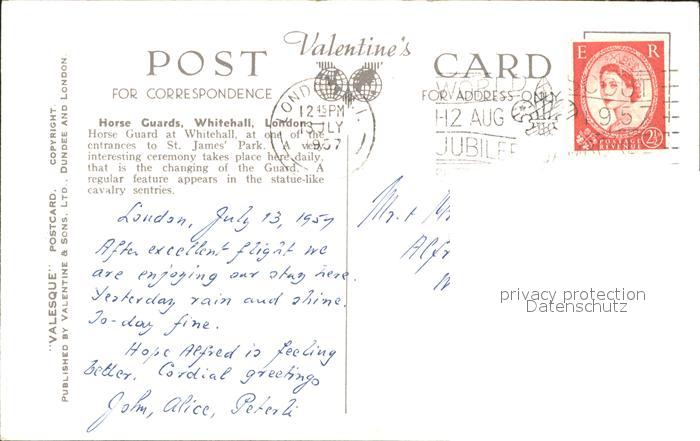 POST
Valentine's
CARD
FOR CORRESPONDENCE
FOR ADDRESS ONLY
"VALESQUE" POSTCARD. COPYRIGHT.
PUBLISHED BY VALENTINE & SONS, LTD., DUNDEE AND LONDON.
Horse Guards, Whitehall, London
Horse Guard at Whitehall, at one of the
entrances to St. James' Park. A very
interesting ceremony takes place here daily,
that is the changing of the Guard. A
regular feature appears in the statue-like
cavalry sentries.
12 45PM
13 JLY
1957
SCOUT
1-12 AUG 1957
JUBILEE
E R
POSTAGE
REVENUE
2½
London, July 13, 1957
After excellent flight we
are enjoying our stay here.
Yesterday rain and shine.
To-day fine.
Hope Alfred is feeling
better. Cordial greetings
John, Alice, Peterli
Mr. +
Alfr
privacy protection
Datenschutz